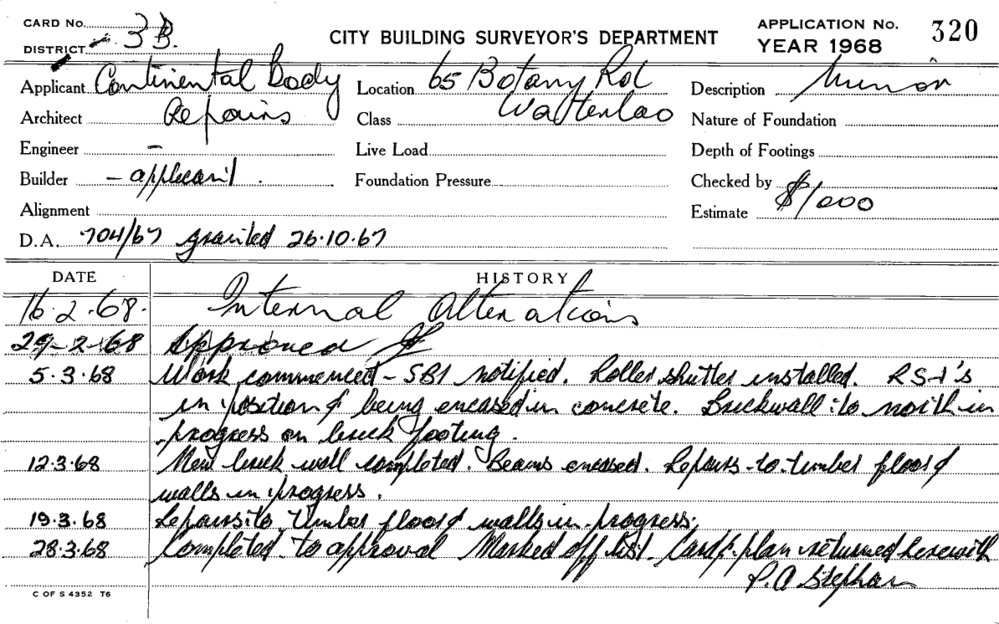 CARD No.
DISTRICT 3B.
CITY BUILDING SURVEYOR'S DEPARTMENT
APPLICATION No. 320
YEAR 1968
Applicant Continental Body Location 65 Botany Rd Description Minor
Architect Repairs Class Waterloo Nature of Foundation
Engineer - Live Load Depth of Footings
Builder - applicant. Foundation Pressure Checked by
Alignment Estimate $1000
D.A. 704/67 granted 26.10.67
DATE HISTORY
16.2.68. Internal Alterations
29-2-68 Approved
5.3.68 Work commenced - SBI notified. Roller shutter installed. RSJ's
in position & being encased in concrete. Brickwall to north in
progress on brick footing.
12.3.68 New brick wall completed. Beams encased. Repairs to timber floor &
walls in progress.
19.3.68 Repairs to timber floor & walls in progress.
28.3.68 Completed to approval Marked off list. Card & plan returned herewith
P.A Stephan
C OF S 4352 T6